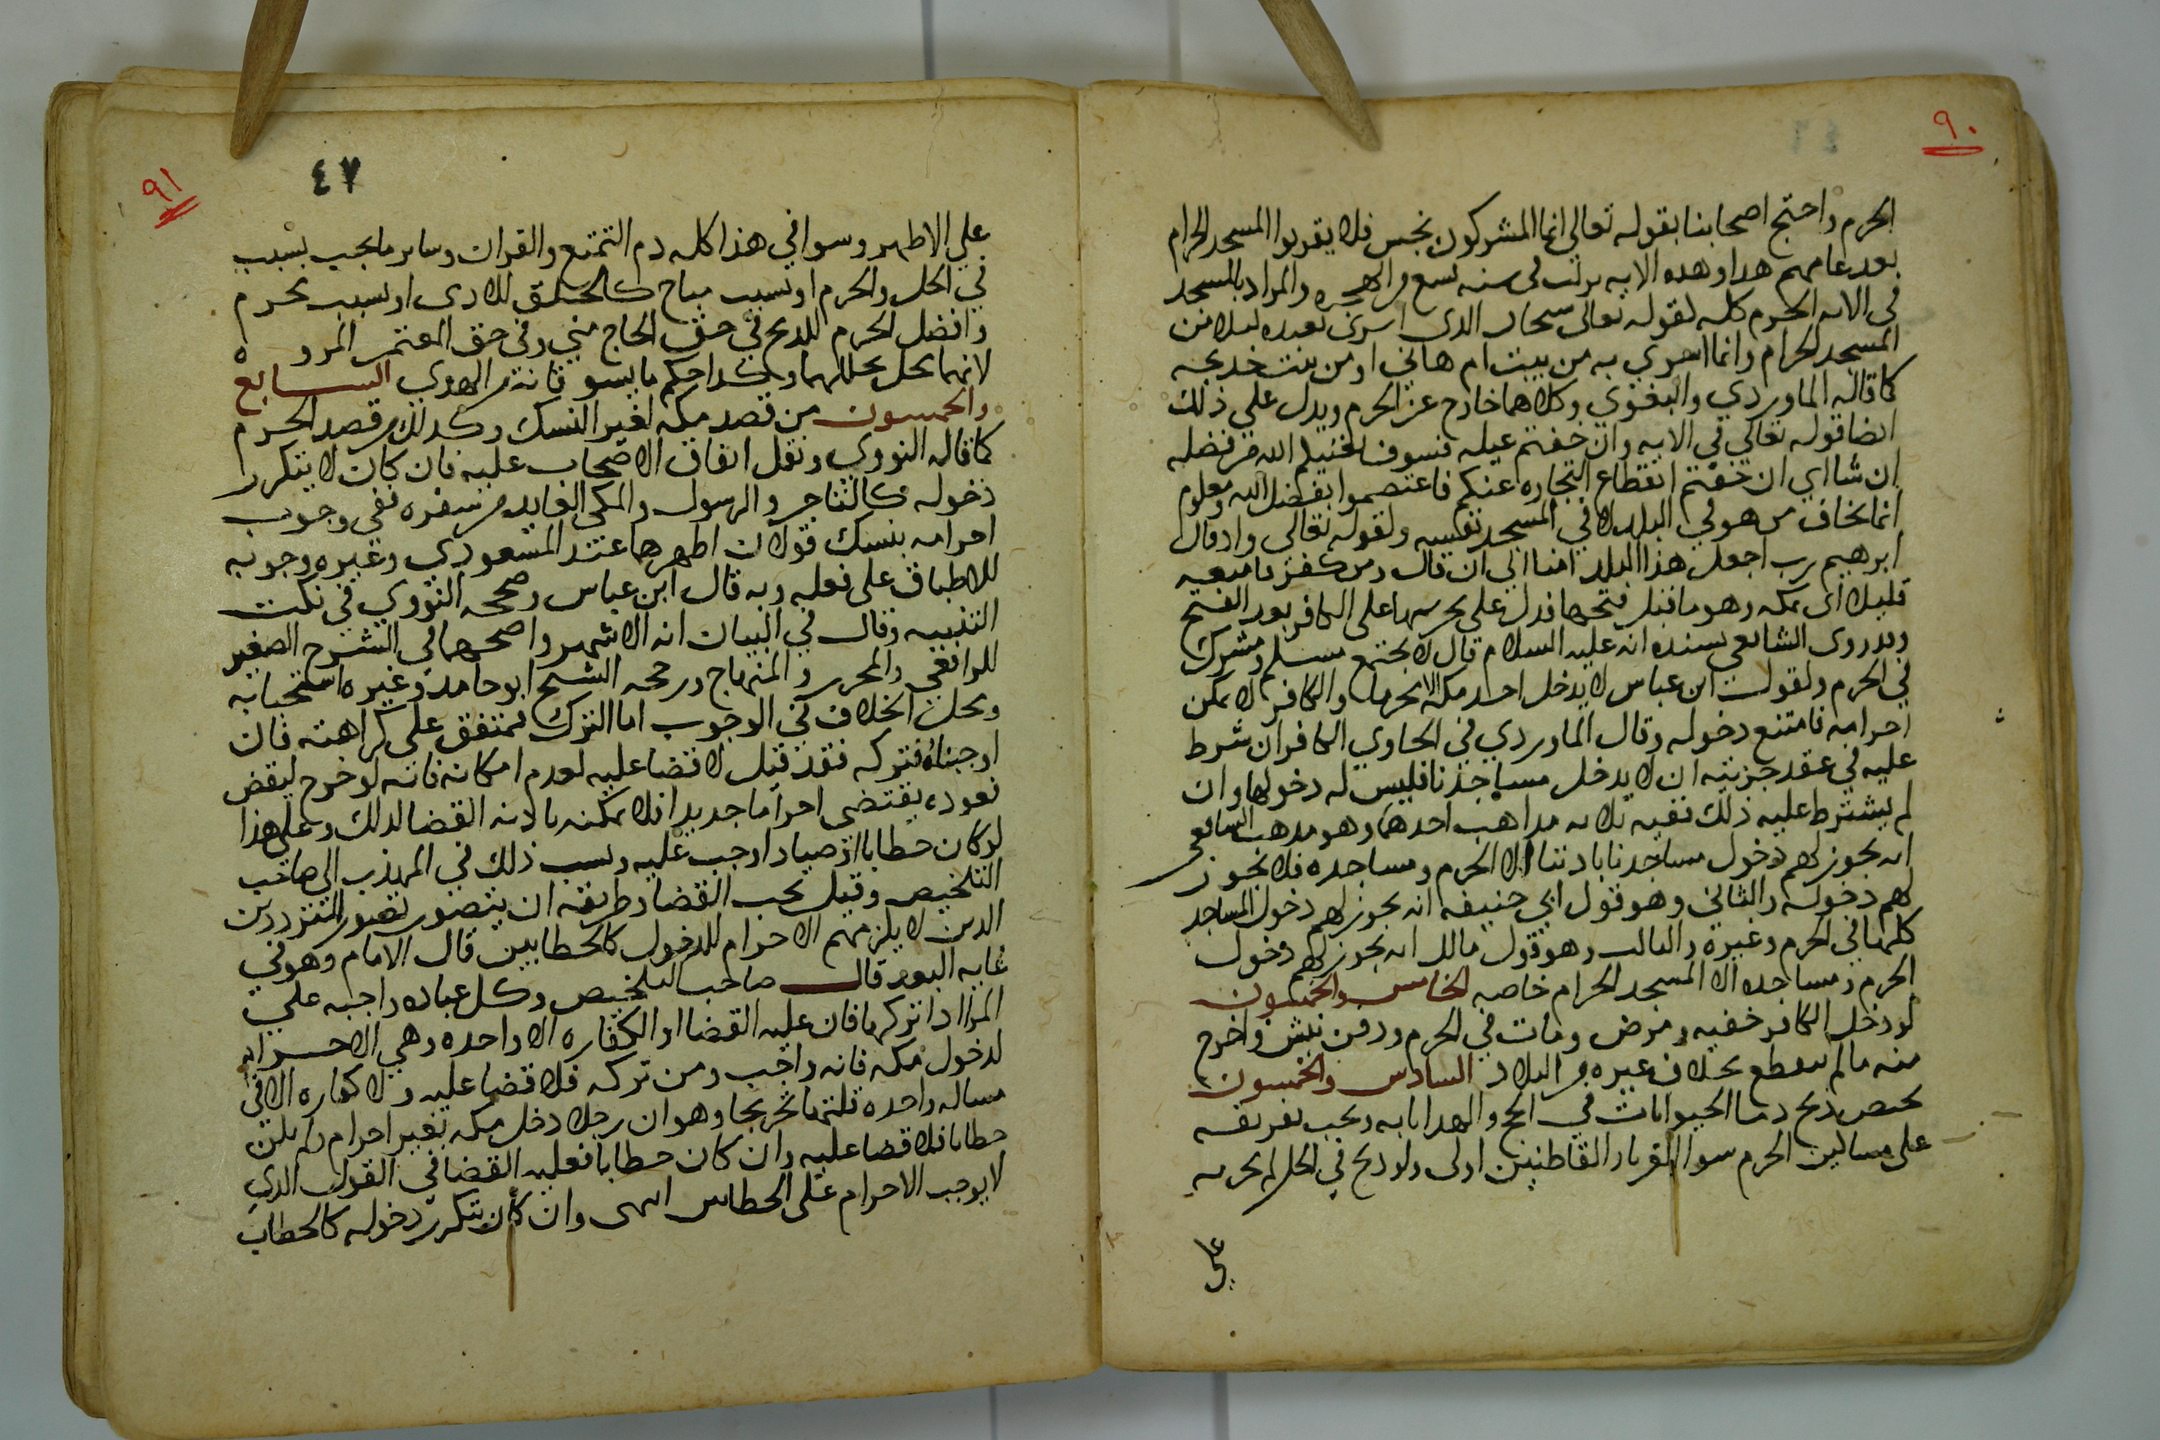 ٩٠
الحرم واحتج اصحابنا بقوله تعالي انما المشركون نجس فلا يقربوا المسجد الحرام
بعد عامهم هدا وهده الايه نزلت في سنه تسع من الهجره والمراد بالمسجد
في الايه الحرم كله لقوله تعالى سبحان الدى اسرى بعبده ليلا من
المسجد الحرام وانما اسري به من بيت ام هاني او من بيت خديجه
كما قاله الماوردي والبغوي وكلاهما خارج عن الحرم ويدل علي ذلك
ايضا قوله تعالي في الايه وان خفتم عيله فسوف يغنيكم الله من فضله
ان شا اي ان خفتم انقطاع التجاره عنكم فاعتصموا بفضل الله ومعلوم
انما يخاف من هو في البلد لا في المسجد نفسه ولقوله تعالى واد قال
ابرهيم رب اجعل هذا البلد امنا الي ان قال ومن كفر فامتعه
قليلا اى بمكه وهو ما قبل فتحها فدل على تحريمها على الكافر بعد الفتح
وقد روى الشافعي بسنده انه عليه السلام قال لا يجتمع مسلم ومشرك
في الحرم ولقول ابن عباس لا يدخل احد مكه الا محرما والكافر لا يمكن
احرامه فامتنع دخوله وقال الماوردي في الحاوي الكافر ان شرط
عليه في عقد جزيته ان لا يدخل مساجدنا فليس له دخولها وان
لم يشترط عليه ذلك ففيه ثلاثه مداهب احدها وهو مدهب الشافعي
انه يجوز لهم دخول مساجدنا باذننا الا الحرم ومساجده فلا يجوز
لهم دخوله والثاني وهو قول ابي حنيفه انه يجوز لهم دخول المساجد
كلها في الحرم وغيره والثالث وهو قول مالك انه يجوز لهم دخول
الحرم ومساجده الا المسجد الحرام خاصه الخامس والخمسون
لو دخل الكافر خفيه ومرض ومات في الحرم ودفن نبش واخرج
منه مالم يتقطع بخلاف غيره من البلاد السادس والخمسون
يختص ذبح دما الحيوانات في الحج والهدايا به ويجب تفريقه
على مساكين الحرم سوا الغربا والقاطنين اولى ولو ذبح في الحل لم يجزيه
علي
٩١
٤٧
علي الاظهر وسوا في هذا كله دم التمتع والقران وساير ما يجب بسبب
في الحل والحرم او بسبب مباح كالحلق للادى او بسبب محرم
وافضل الحرم للذبح في حق الحاج مني وفي حق المعتمر المروه
لانهما محل تحللهما وكدا حكم ما يسوقانه من الهدي السابع
والخمسون من قصد مكه لغير النسك وكدلك من قصد الحرم
كما قاله النووي ونقل اتفاق الاصحاب عليه فان كان لا يتكرر
دخوله كالتاجر والرسول والمكي العايد من سفره ففي وجوب
احرامه بنسك قولان اظهرهما عند المسعودي وغيره وجوبه
للاطباق على فعله وبه قال ابن عباس وصححه النووي في نكت
التنبيه وقال في البيان انه الاشهر واصحهما في الشرح الصغير
للرافعي والمحرر والمنهاج ورجحه الشيخ ابو حامد وغيره استحبابه
ومحل الخلاف في الوجوب اما الترك فمتفق على كراهته فان
اوجبناه فتركه فقد قيل لا قضا عليه لعدم امكانه فانه لو خرج ليقض
فعوده يقتضى احراما جديدا فلا يمكنه بادنه القضا لدلك وعلى هذا
لو كان حطابا او صيادا وجب عليه ونسب ذلك في المهذب الى صاحب
التلخيص وقيل يجب القضا وطريقه ان يتصور بصور المترددين
الدين لا يلزمهم الاحرام للدخول كالحطابين قال الامام وهو في
غايه البعد قال صاحب التلخيص وكل عباده واجبه علي
المرا ادا تركها فان عليه القضا او الكفاره الا واحده وهي الاحرام
لدخول مكه فانه واجب ومن تركه فلا قضا عليه ولا كفاره الا في
مساله واحده قلتها تخريجا وهو ان رجلا دخل مكه بغير احرام ولم يكن
حطابا فلا قضا عليه وان كان حطابا فعليه القضا في القول الدي
لا يوجب الاحرام على الحطابين انتهى وان كان يتكرر دخوله كالحطاب